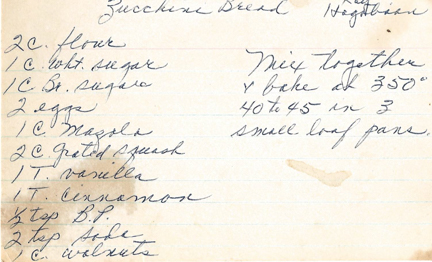 Zucchini Bread
Kay Hogoboom
2 C. flour
1 C. wht. sugar
1 C. Br. sugar
2 eggs
1 C. Mazola
2 C. grated squash
1 T. vanilla
1 T. cinnamon
½ tsp B.P.
2 tsp soda
1 C. walnuts
Mix together
& bake at 350°
40 to 45 in 3
small loaf pans.